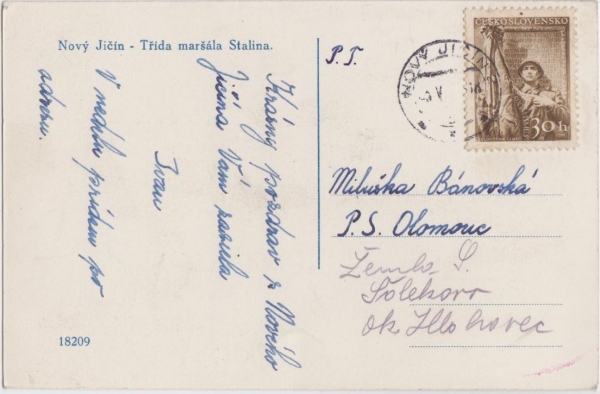 Nový Jičín - Třída maršála Stalina.
Krásny pozdrav z Nového
Jičína Vám zasiela
Ivan
V nedeľu prídem po
adresu.
18209
P. T.
ČESKOSLOVENSKO
30 h
NOVÝ JIČÍN
Miluška Bánovská
P. S. Olomouc
Žemb. S.
Šolekovo
ok Hlohovec